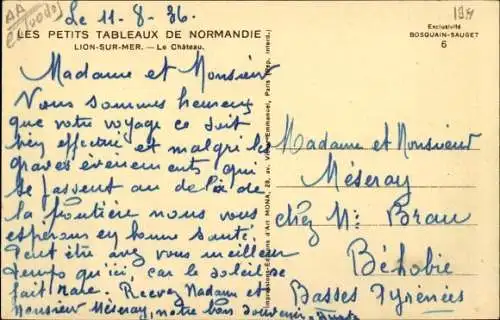 Le 11-8-36.
LES PETITS TABLEAUX DE NORMANDIE
LION-SUR-MER. — Le Château.
Madame et Monsieur
Nous sommes heureux
que votre voyage ce soit
bien effectué et malgré les
graves évènements qui
se passent au delà de
la frontière nous vous
esperons en bonne santé.
Peut être avez vous meilleur
temps qu'ici, car le soleil se
fait rare. Recevez Madame et
Monsieur Méseray, notre bon souvenir.
Exclusivité
BOSQUAIN-SAUGET
6
Madame et Monsieur
Méseray
chez Mr Brau
Béhobie
Basses Pyrénées